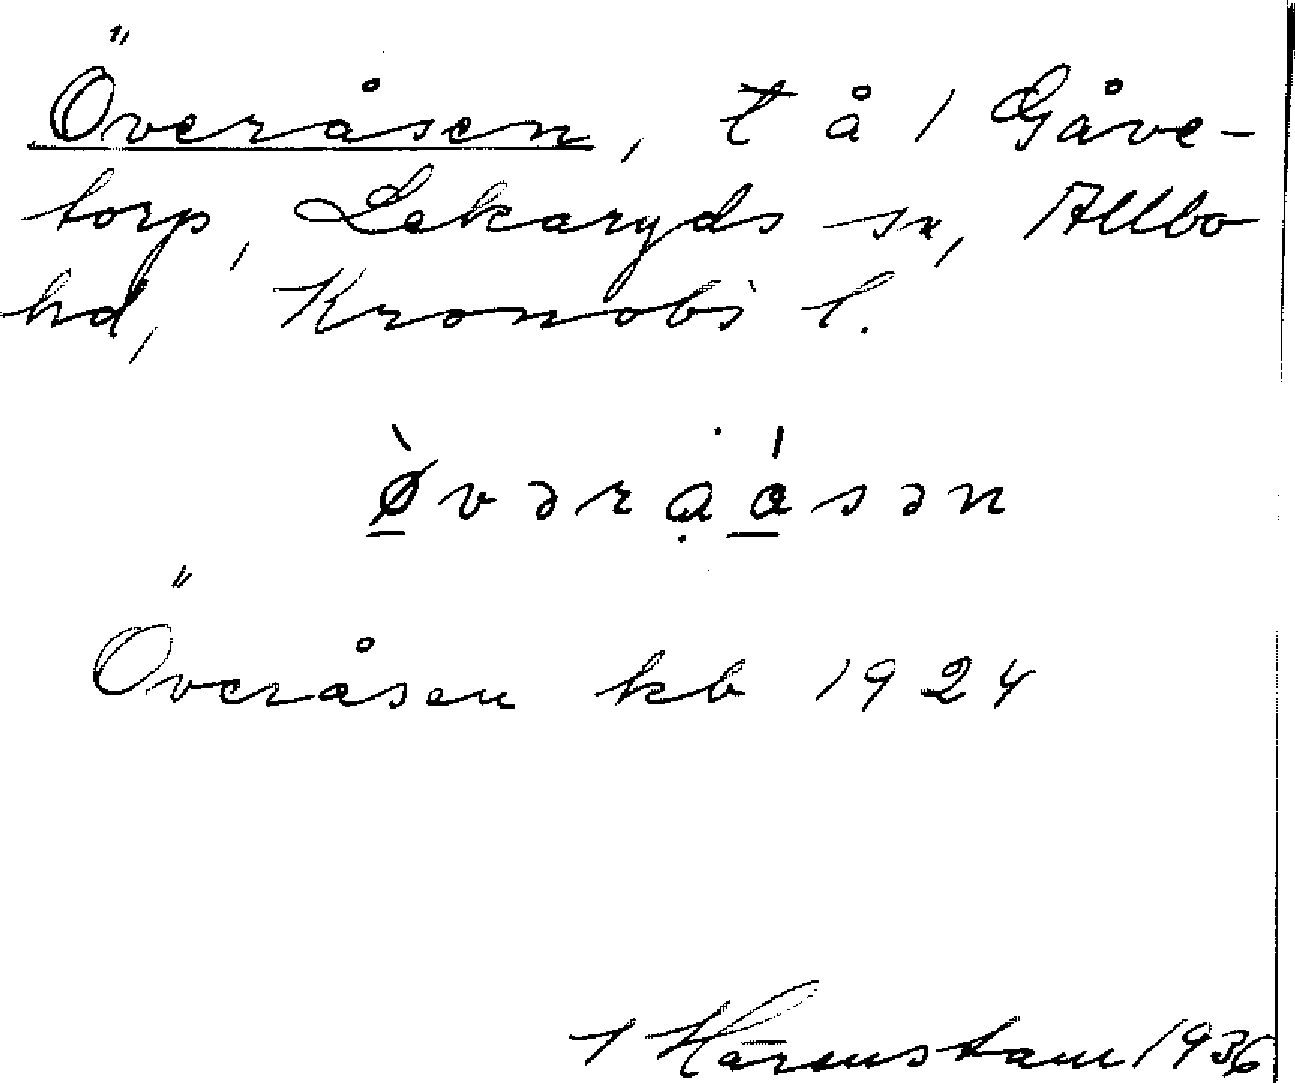 Överåsen, t å 1 Gåve-
torp, Lekaryds sn, Allbo
hd, Kronobs l.
ø̀vərạásən
Överåsen kb 1924
1936